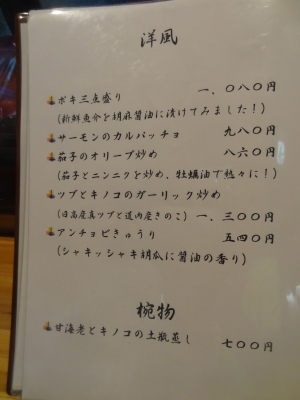 洋風
ポキ三点盛り 一、〇八〇円
(新鮮魚介を胡麻醤油に漬けてみました!)
サーモンのカルパッチョ 九八〇円
茄子のオリーブ炒め 八六〇円
(茄子とニンニクを炒め、牡蠣油で熱々に!)
ツブとキノコのガーリック炒め
(日高産真ツブと道内産きのこ) 一、三〇〇円
アンチョビきゅうり 五四〇円
(シャキッシャキ胡瓜に醤油の香り)
椀物
甘海老とキノコの土瓶蒸し 七〇〇円